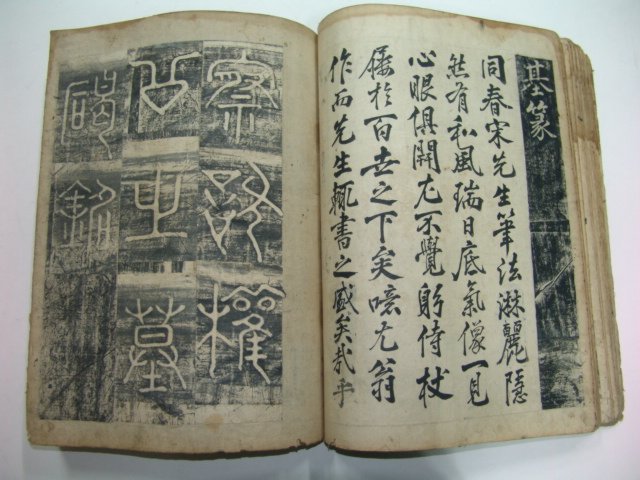 墓篆
同春宋先生筆法淋麗隱
然有和風瑞日底氣像一見
心眼俱開尤不覺躬侍杖
屨於百世之下矣噫尤翁
作而先生輒書之盛矣哉乎
察訪權
公之墓
碣銘